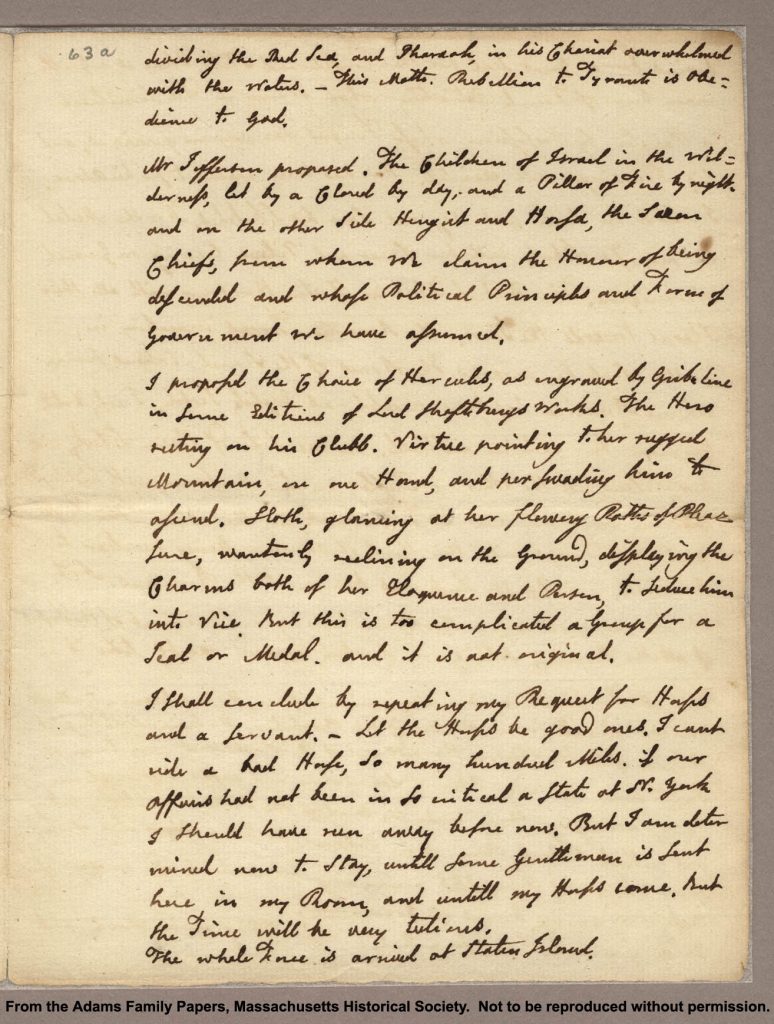 63a
dividing the Red Sea, and Pharaoh, in his Chariot overwhelmed
with the Waters. — This Motto. Rebellion to Tyrants is Obe=
dience to God.
Mr. Jefferson proposed. The Children of Israel in the Wil=
derness, led by a Cloud by day, and a Pillar of Fire by night.
and on the other Side Hengist and Horsa, the Saxon
Chiefs, from whom We claim the Honour of being
descended and whose Political Principles and Form of
Government We have assumed.
I proposed the Choice of Hercules, as engraved by Gribeline
in some Editions of Lord Shaftsburys Works. The Hero
resting on his Clubb. Virtue pointing to her rugged
Mountain, on one Hand, and perswading him to
ascend. Sloth, glancing at her flowery Paths of Plea=
sure, wantonly reclining on the Ground, displaying the
Charms both of her Eloquence and Person, to seduce him
into Vice. But this is too complicated a Group for a
Seal or Medal. and it is not original.
I shall conclude by repeating my Request for Horses
and a servant. — Let the Horses be good ones. I cant
ride a bad Horse, so many hundred Miles. if our
Affairs had not been in so critical a State at N. York
I should have run away before now. But I am deter
mined now to stay, untill some Gentleman is sent
here in my Room, and untill my Horses come. But
the Time will be very tedious.
The whole Force is arrived at Staten Island.
From the Adams Family Papers, Massachusetts Historical Society. Not to be reproduced without permission.